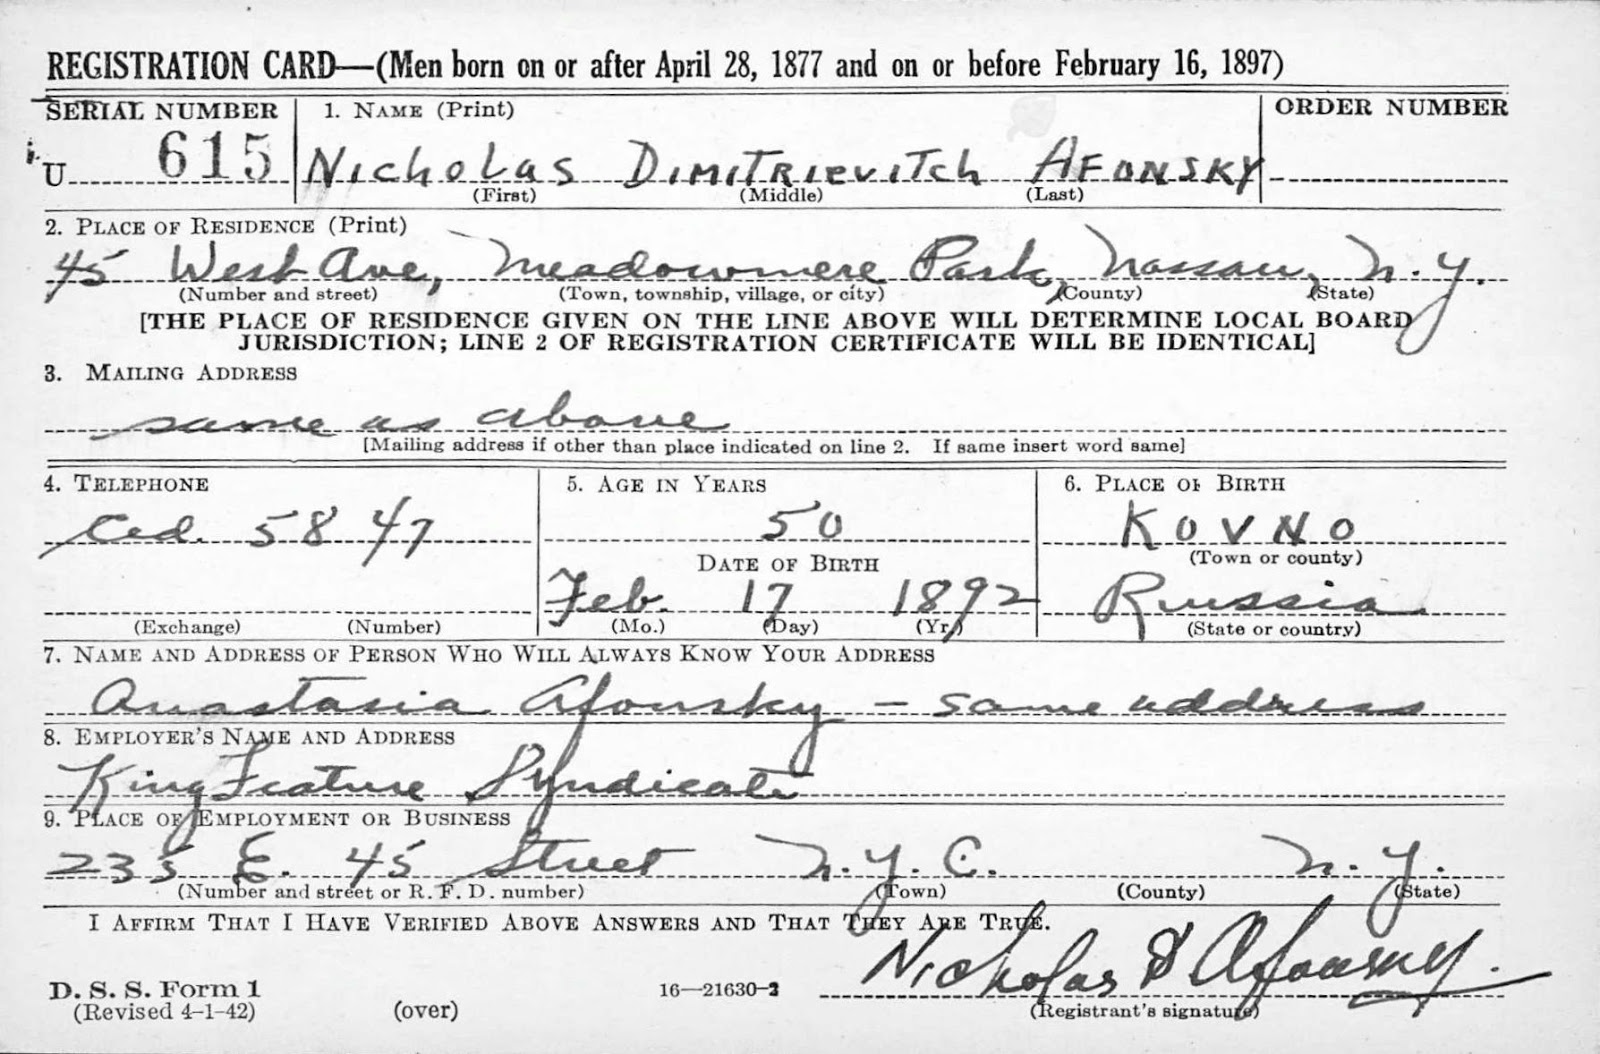 REGISTRATION CARD—(Men born on or after April 28, 1877 and on or before February 16, 1897)
SERIAL NUMBER 1. NAME (Print) ORDER NUMBER
U 615 NICHOLAS DIMITRIEVITCH AFONSKY
(First) (Middle) (Last)
2. PLACE OF RESIDENCE (Print)
45 West Ave, Meadowmere Park, Nassau, N.Y.
(Number and street) (Town, township, village, or city) (County) (State)
[THE PLACE OF RESIDENCE GIVEN ON THE LINE ABOVE WILL DETERMINE LOCAL BOARD
JURISDICTION; LINE 2 OF REGISTRATION CERTIFICATE WILL BE IDENTICAL]
3. MAILING ADDRESS
same as above
[Mailing address if other than place indicated on line 2. If same insert word same]
4. TELEPHONE 5. AGE IN YEARS 6. PLACE OF BIRTH
Ced. 5847 50 KOVNO
DATE OF BIRTH (Town or county)
Feb. 17 1892 Russia
(Exchange) (Number) (Mo.) (Day) (Yr.) (State or country)
7. NAME AND ADDRESS OF PERSON WHO WILL ALWAYS KNOW YOUR ADDRESS
Anastasia Afonsky — same address
8. EMPLOYER'S NAME AND ADDRESS
King Feature Syndicate
9. PLACE OF EMPLOYMENT OR BUSINESS
235 E. 45 Street N.Y.C. N.Y.
(Number and street or R. F. D. number) (Town) (County) (State)
I AFFIRM THAT I HAVE VERIFIED ABOVE ANSWERS AND THAT THEY ARE TRUE.
Nicholas D Afonsky.
D. S. S. Form 1 16—21630-2
(Revised 4-1-42) (over) (Registrant's signature)